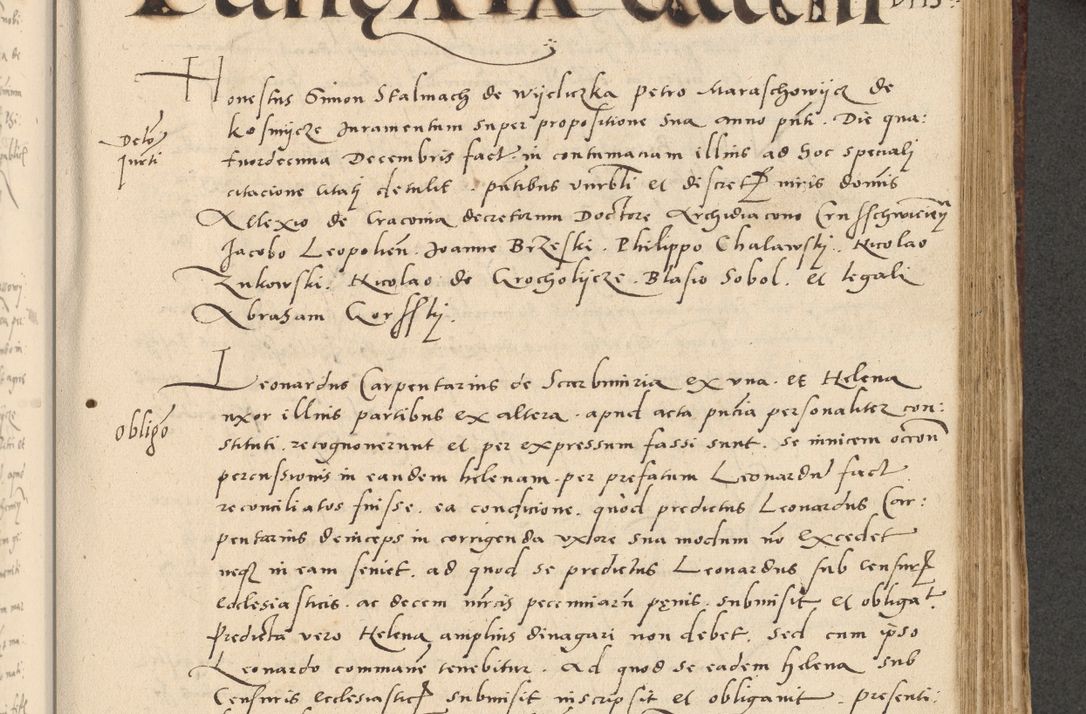 Honestus Simon Stalmach de Wyeliczka Petro Maraschowijcz de
Kosmijcze Juramentum super propositione sua anno pñti. Die qua:
tuordecima Decembris fact. in contumaciam illius ad hoc specialj
citacione citatj detulit. pñtibus vnrbli et discret viris domīs
Allexio de Cracouia decretorum Doctore Archidiacono
Jacobo Leopolieñ. Joanne Brzeski. Philippo Chalawskj. Nicolao
Zukowski. Nicolao de Grocholijcze. Blasio Sobol. et legali
Abraham Gorsskij.
Juris
Leonardus Carpentarius de Scarbimiria ex vna. et Helena
uxor illius partibus ex altera. apud acta pñtia personaliter con:
obligõ
stituti. recognouerunt et per expressum fassi sunt. se inuicem occoñ
percussionis in eandem helenam. per prefatum Leonardũ fact
reconciliatos fuisse. ea condicione. quod predictus Leonardus Car:
pentarius deinceps in corrigenda vxore sua modum nõ excedet
neqȝ in eam seuiet. ad quod se predictus Leonardus sub censur
ecclesiasticis. ac decem mrcis pecuniarñ pęnis. submisit et obligat.
Predicta vero Helena amplius diuagari non debet. sed cum ipso
Leonardo commanē tenebitur. Ad quod se eadem helena sub
Censuris ecclesiastic submisit inscripsit et obligauit. presenti: